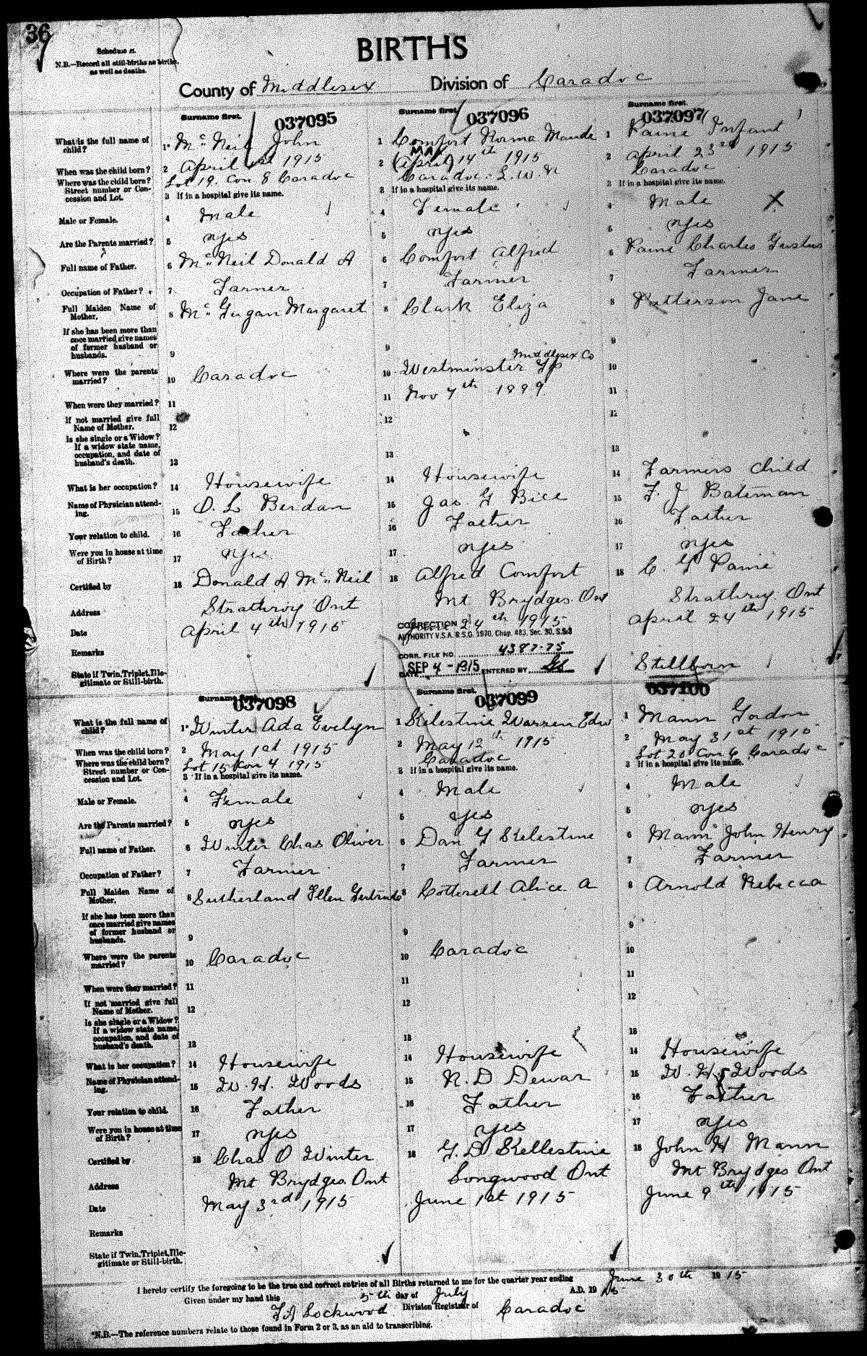 36
Schedule
N.B.—Record all still-births as births, as well as deaths.
BIRTHS
County of Middlesex Division of Caradoc
Surname first.
037095
Surname first.
037096
Surname first.
037097
What is the full name of child?
1 Mc Neil John
1 Comfort Norma Maude
1 Paine Infant
MAY
When was the child born?
2 April 1st 1915
2 (April) 14th 1915
2 April 23rd 1915
Where was the child born? Street number or Concession and Lot.
Lot 19. Con 8 Caradoc
Caradoc. L. W. R
Caradoc
3 If in a hospital give its name.
3 If in a hospital give its name.
3 If in a hospital give its name.
Male or Female.
4 Male
4 Female
4 Male X
Are the Parents married?
5 yes
5 yes
5 yes
Full name of Father.
6 Mc Neil Donald A
6 Comfort Alfred
6 Paine Charles Gustus
Occupation of Father?
7 Farmer
7 Farmer
7 Farmer
Full Maiden Name of Mother.
8 Mc Gugan Margaret
8 Clark Eliza
8 Patterson Jane
If she has been more than once married give names of former husband or husbands.
9
9
9
Where were the parents married?
10 Caradoc
Middlesex Co
10 Westminster Tp
10
When were they married?
11
11 Nov 7th 1899
11
If not married give full Name of Mother.
12
12
12
Is she single or a Widow? If a widow state name, occupation, and date of husband's death.
13
13
13
What is her occupation?
14 Housewife
14 Housewife
14 Farmers Child
Name of Physician attending.
15 O. L Berdan
15 Jas G Bice
15 F. J Bateman
Your relation to child.
16 Father
16 Father
16 Father
Were you in house at time of Birth?
17 yes
17 yes
17 yes
Certified by
18 Donald A Mc Neil
18 Alfred Comfort
18 C. G Paine
Address
Strathroy Ont
Mt Brydges Ont
Strathroy Ont
Date
April 4th 1915
24th 1915
April 24th 1915
Remarks
CORRECTION
AUTHORITY V.S.A. R.S.O. 1970, Chap. 483, Sec. 30, S.S.3
CORR. FILE NO. 4387-75
SEP 4 - 1975 ENTERED BY
State if Twin, Triplet, Illegitimate or Still-birth.
Stillborn
Surname first.
037098
Surname first.
037099
037100
What is the full name of child?
1 Winter Ada Evelyn
1 Kelestine Warren Edw
1 Mann Gordon
When was the child born?
2 May 1st 1915
2 May 12th 1915
2 May 31st 1915
Where was the child born? Street number or Concession and Lot.
Lot 15 Con 4 1915
Caradoc
Lot 20 Con 6 Caradoc
3 If in a hospital give its name.
3 If in a hospital give its name.
3 If in a hospital give its name.
Male or Female.
4 Female
4 Male
4 Male
Are the Parents married?
5 yes
5 yes
5 yes
Full name of Father.
6 Winter Chas Oliver
6 Dan G Kelestine
6 Mann John Henry
Occupation of Father?
7 Farmer
7 Farmer
7 Farmer
Full Maiden Name of Mother.
8 Sutherland Ellen Gertrude
8 Cotterell Alice A
8 Arnold Rebecca
If she has been more than once married give names of former husband or husbands.
9
9
9
Where were the parents married?
10 Caradoc
10 Caradoc
10
When were they married?
11
11
11
If not married give full Name of Mother.
12
12
12
Is she single or a Widow? If a widow state name, occupation, and date of husband's death.
13
13
13
What is her occupation?
14 Housewife
14 Housewife
14 Housewife
Name of Physician attending.
15 W. H. Woods
15 R. D Dewar
15 W. H. Woods
Your relation to child.
16 Father
16 Father
16 Father
Were you in house at time of Birth?
17 yes
17 yes
17 yes
Certified by
18 Chas O Winter
18 G. D Kellestine
18 John H Mann
Address
Mt Brydges Ont
Longwood Ont
Mt Brydges Ont
Date
May 3rd 1915
June 1st 1915
June 9th 1915
Remarks
State if Twin, Triplet, Illegitimate or Still-birth.
I hereby certify the foregoing to be the true and correct entries of all Births returned to me for the quarter year ending June 30th 1915
Given under my hand this 5th day of July A.D. 1915
F A Lockwood Division Registrar of Caradoc
*N.B.—The reference numbers relate to those found in Form 2 or 3, as an aid to transcribing.